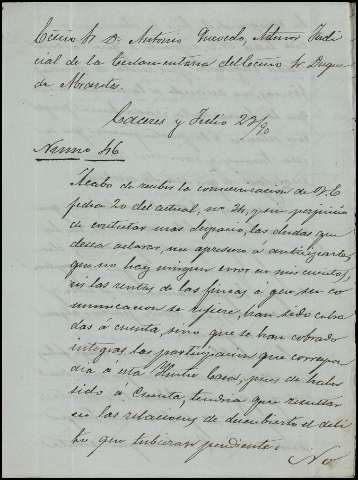 Excmo Sr D. Antonio Quevedo, Admor Judi
cial de la Testamentaria del Excmo Sr Duque
de Abrantes.
Caceres y Julio 22/90
Numo 46
Acabo de recibir la comunicacion de V.E
fecha 20 del actual, no 24, y sin perjuicio
de contestar mas despacio, las dudas que
desea aclarar, me apresuro á anticiparle,
que no hay ningun error en mis cuentas,
ni las rentas de las fincas á que su co
municacion se refiere, han sido cobra
das á cuenta, sino que se han cobrado
integras las participaciones que correspon
dia á esta Ilustre Casa, pues de haber
sido á cuenta, tendria que resultar
en las relaciones de descubierto el debi
to que tubieran pendiente.
No